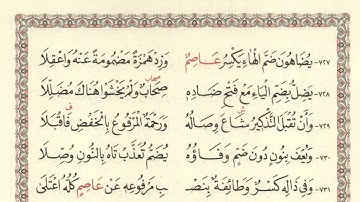 ٧٢٧- يُضَاهُونَ ضَمَّ الْهَاءِ يَكْسِرُ عَاصِمٌ وَزِدْ هَمْزَةً مَضْمُومَةً عَنْهُ وَاعْقِلَا
٧٢٨- يَضِلُّ بِضَمِّ الْيَاءِ مَعْ فَتْحِ ضَادِهِ صِحَابٌ وَلَمْ يَخْشَوْا هُنَاكَ مُضَلِّلَا
٧٢٩- وَأَنْ تُقْبَلَ التَّذْكِيرُ شَاعَ وِصَالُهُ وَرَحْمَةٌ الْمَرْفُوعُ بِالْخَفْضِ فَاقْبَلَا
٧٣٠- وَيُعْفَ بِنُونٍ دُونَ ضَمٍّ وَفَاؤُهُ يُضَمُّ تُعَذَّبْ تَاهُ بِالنُّونِ وُصِّلَا
٧٣١- وَفِي ذَالِهِ كَسْرٌ وَطَائِفَةٌ بِنَصْـ ـبِ مَرْفُوعِهِ عَنْ عَاصِمٍ كُلُّهُ اعْتَلَى